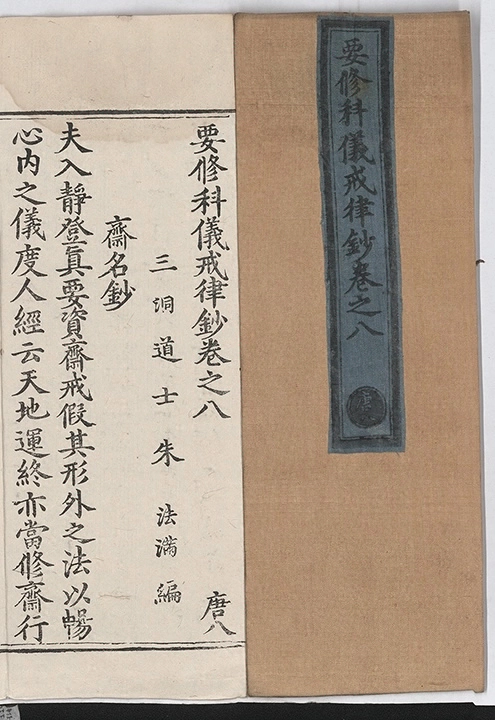 要修科儀戒律鈔卷之八
唐
要修科儀戒律鈔卷之八
唐八
三洞道士朱法滿編
齋名鈔
夫入靜登真要資齋戒假其形外之法以暢
心內之儀度人經云天地運終亦當修齋行